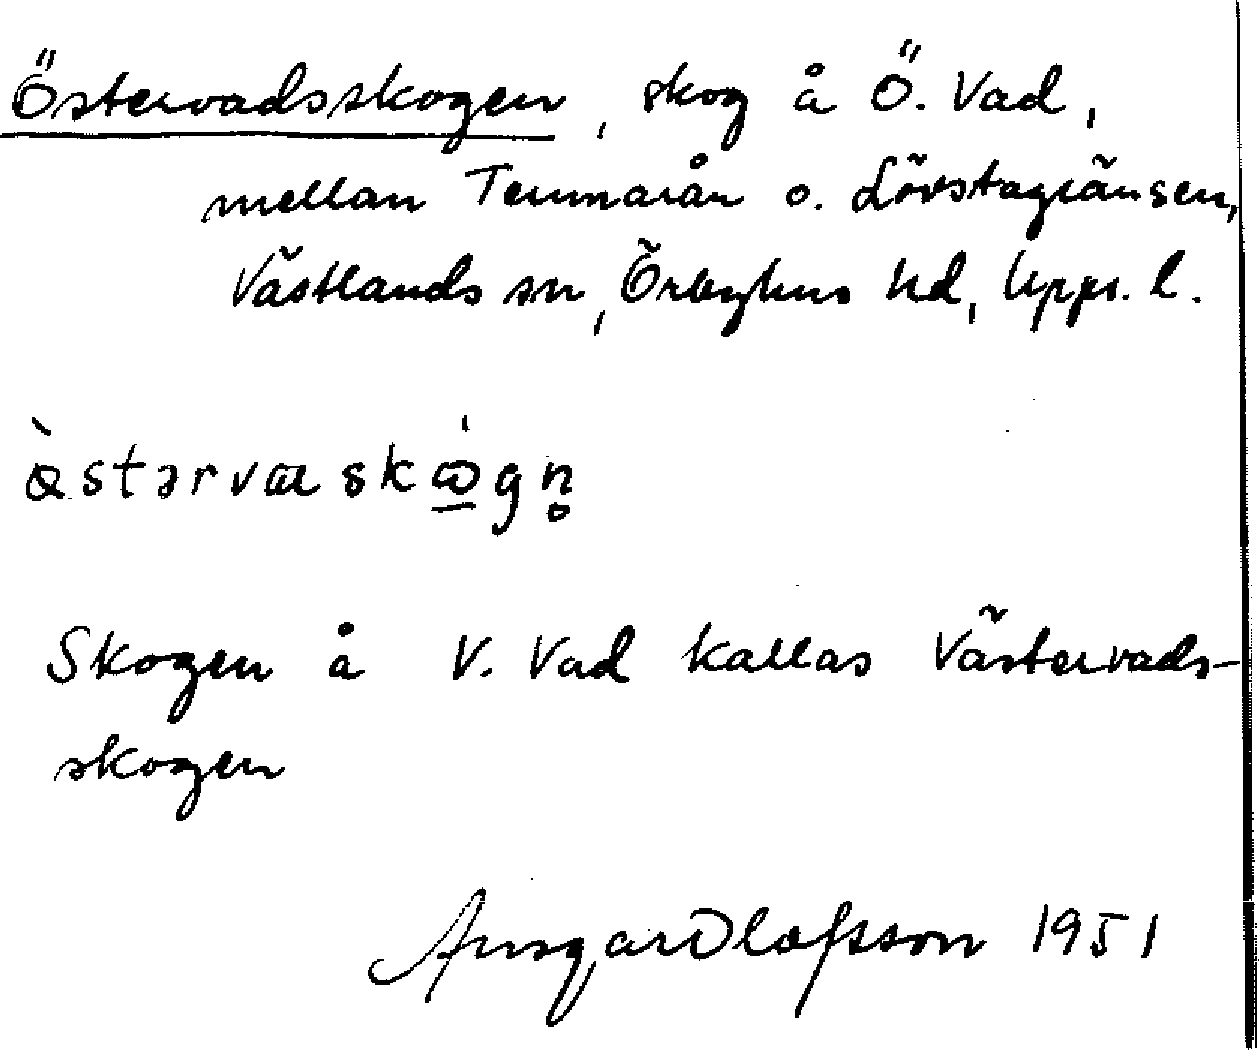 Östervadsskogen, skog å Ö. Vad,
mellan Temnarån o. Lövstagränsen,
Västlands sn, Örbyhus hd, Upps. l.
ὰstərvaskω̲̇gn̥
Skogen å V. Vad kallas Västervads-
skogen
Ansgar Olafsson 1951